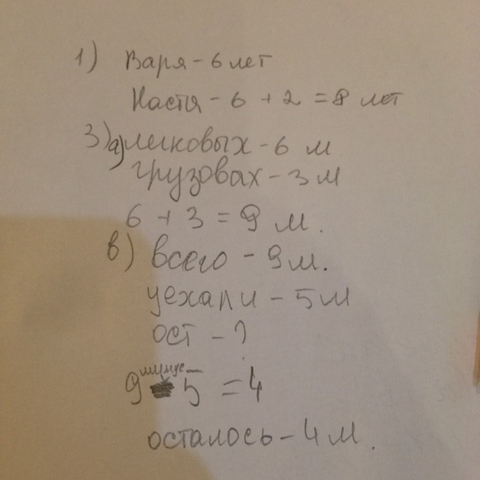 1) Варя - 6 лет
Настя - 6 + 2 = 8 лет
3) а) легковых - 6 м
грузовах - 3 м
6 + 3 = 9 м.
в) всего - 9 м.
уехали - 5 м
ост - ?
9 минус 5 = 4
осталось - 4 м.